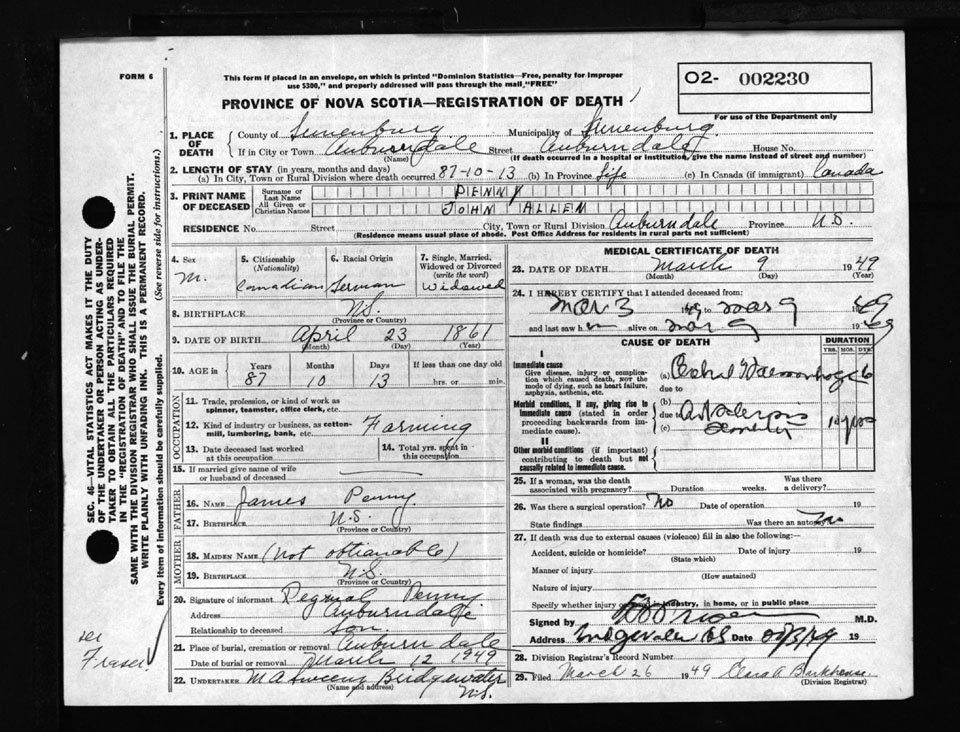 FORM 6
This form if placed in an envelope, on which is printed "Dominion Statistics—Free, penalty for improper
use $300," and properly addressed will pass through the mail "FREE"
O2- 002230
For use of the Department only
PROVINCE OF NOVA SCOTIA—REGISTRATION OF DEATH
1. PLACE OF DEATH
County of Lunenburg Municipality of Lunenburg
If in City or Town Auburndale Street Auburndale House No.
(Name) (If death occurred in a hospital or institution, give the name instead of street and number)
2. LENGTH OF STAY (in years, months and days)
(a) In City, Town or Rural Division where death occurred 87-10-13 (b) In Province Life (c) In Canada (if immigrant) Canada
3. PRINT NAME OF DECEASED
Surname or Last Name PENNY
All Given or Christian Names JOHN ALLEN
RESIDENCE No. Street City, Town or Rural Division Auburndale Province N.S.
(Residence means usual place of abode. Post Office Address for residents in rural parts not sufficient)
4. Sex M.
5. Citizenship (Nationality) Canadian
6. Racial Origin German
7. Single, Married, Widowed or Divorced (write the word) Widowed
8. BIRTHPLACE N.S.
(Province or Country)
9. DATE OF BIRTH April 23 1861
(Month) (Day) (Year)
10. AGE in Years Months Days If less than one day old
87 10 13 hrs. or min.
OCCUPATION
11. Trade, profession, or kind of work as
spinner, teamster, office clerk, etc.
12. Kind of industry or business, as cotton-
mill, lumbering, bank, etc. Farming
13. Date deceased last worked at this occupation
14. Total yrs. spent in this occupation
15. If married give name of wife
or husband of deceased
FATHER
16. NAME James Penny
17. BIRTHPLACE N.S.
(Province or Country)
MOTHER
18. MAIDEN NAME (Not obtianable)
19. BIRTHPLACE N.S.
(Province or Country)
20. Signature of informant Penny
Address Auburndale
Relationship to deceased son.
21. Place of burial, cremation or removal Auburndale
Date of burial or removal March 12 1949
22. UNDERTAKER M A Sweeny Bridgewater
(Name and address) N.S.
MEDICAL CERTIFICATE OF DEATH
23. DATE OF DEATH March 9 1949
(Month) (Day) (Year)
24. I HEREBY CERTIFY that I attended deceased from:
Mar 3 1949 to Mar 9 1949
and last saw h m alive on Mar 9 1949
CAUSE OF DEATH
DURATION
YRS. MOS. DYS.
I
Immediate cause
Give disease, injury or complica-
tion which caused death, not the
mode of dying, such as heart failure,
asphyxia, asthenia, etc.
(a) 6
due to
Morbid conditions, if any, giving rise to
Immediate cause (stated in order
proceeding backwards from im-
mediate cause).
(b)
due to
(c)
II
Other morbid conditions (if important)
contributing to death but not
causally related to immediate cause.
25. If a woman, was the death
associated with pregnancy? Duration weeks. Was there a delivery?
26. Was there a surgical operation? No Date of operation 19
State findings Was there an autopsy? No
27. If death was due to external causes (violence) fill in also the following:
Accident, suicide or homicide? Date of injury 19
(State which)
Manner of injury
(How sustained)
Nature of injury
Specify whether injury occurred in industry, in home, or in public place
Signed by M.D.
Address Bridgewater NS Date 19
28. Division Registrar's Record Number
29. Filed March 26 1949 Clara A Barkhouse
(Division Registrar)
SEC. 46—VITAL STATISTICS ACT MAKES IT THE DUTY
OF THE UNDERTAKER OR PERSON ACTING AS UNDER-
TAKER TO OBTAIN ALL THE PARTICULARS REQUIRED
IN THE "REGISTRATION OF DEATH" AND TO FILE THE
SAME WITH THE DIVISION REGISTRAR WHO SHALL ISSUE THE BURIAL PERMIT.
WRITE PLAINLY WITH UNFADING INK. THIS IS A PERMANENT RECORD.
Every item of information should be carefully supplied. (See reverse side for instructions.)
see
Fraser